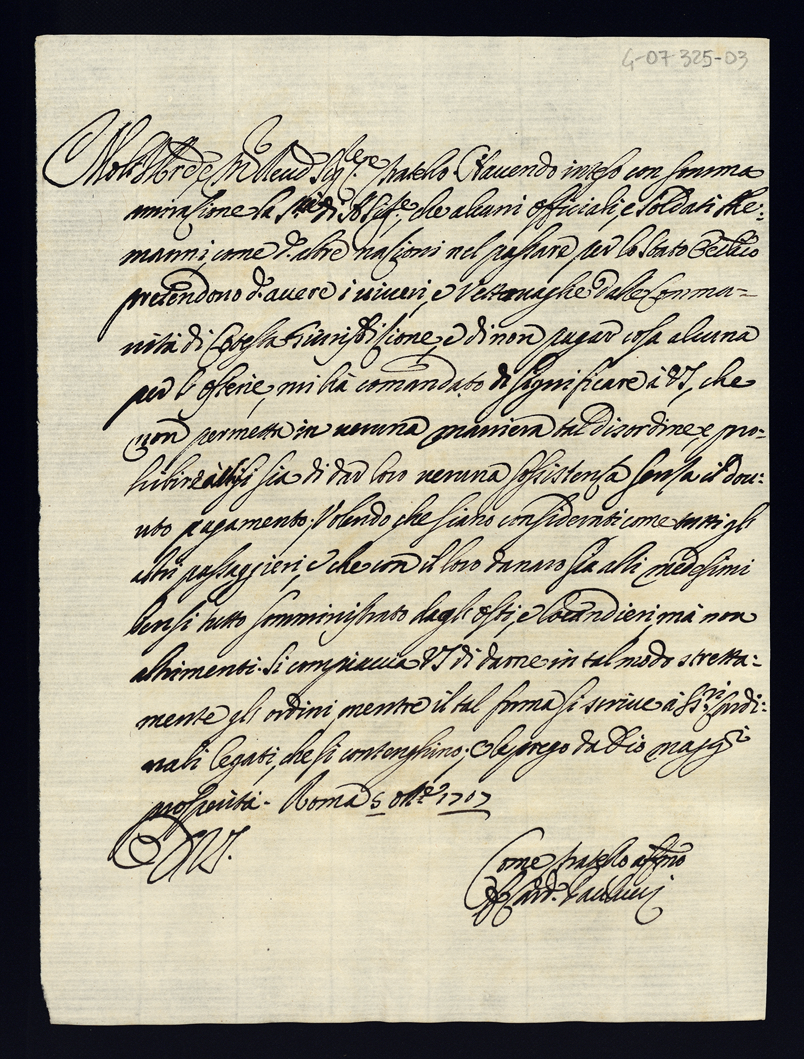 G-07-325-03
Molt' Ill.re e m.to Rev.d Sig.re come fratello. Havendo inteso con somma
amirasione la S.tà di N. Sig.re, che alcuni Officiali, e soldati Ale:
manni, come d'altre nazioni nel passare per lo stato Eccl.co
pretendono d'avere i viveri, e Vettovaglie dalle Commu-
nità di Cotesta Giurisdisione, e di non pagar cosa alcuna
per l'osterie, mi hà comandato di significare à VS, che
non permetta in veruna maniera tal disordine, e pro-
hibire à tutti sia di dar loro veruna sossistenza senza il dov-
uto pagamento, Volendo che siano considerati come tutti gli
altri passaggieri, e che con il loro danaro sia alli medesimi
bensi tutto somministrato dagli Osti, e locandieri, mà non
altrimenti. Si compiaccia VS di darne in tal modo stretta:
mente gli ordini, mentre il tal forma si scrive à SS.ri Cardi:
nali legati, che si contenghino; e le prego da Dio magg.ri
prosperità. Roma 5 ott.e 1707
D V S.
Come fratello aff.mo
F. Card. Paulucci